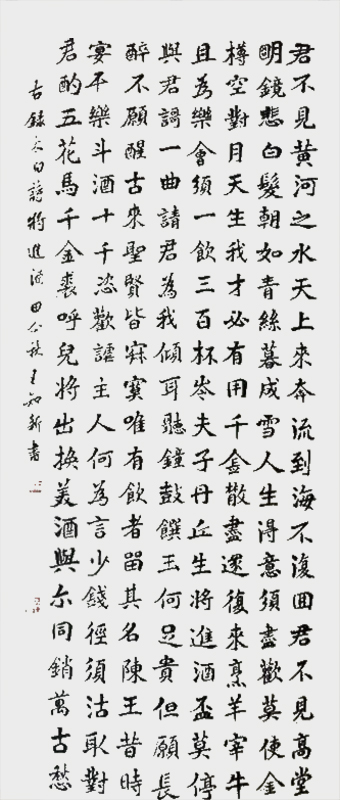 君不見黃河之水天上來奔流到海不復回君不見高堂
明鏡悲白髮朝如青絲暮成雪人生得意須盡歡莫使金
樽空對月天生我才必有用千金散盡還復來烹羊宰牛
且為樂會須一飲三百杯岑夫子丹丘生將進酒盃莫停
與君謌一曲請君為我傾耳聽鐘鼓饌玉何足貴但願長
醉不願醒古來聖賢皆寂寞唯有飲者留其名陳王昔時
宴平樂斗酒十千恣歡謔主人何為言少錢徑須沽取對
君酌五花馬千金裘呼兒將出換美酒與尔同銷萬古愁
古錄太白詩將進酒王知新書